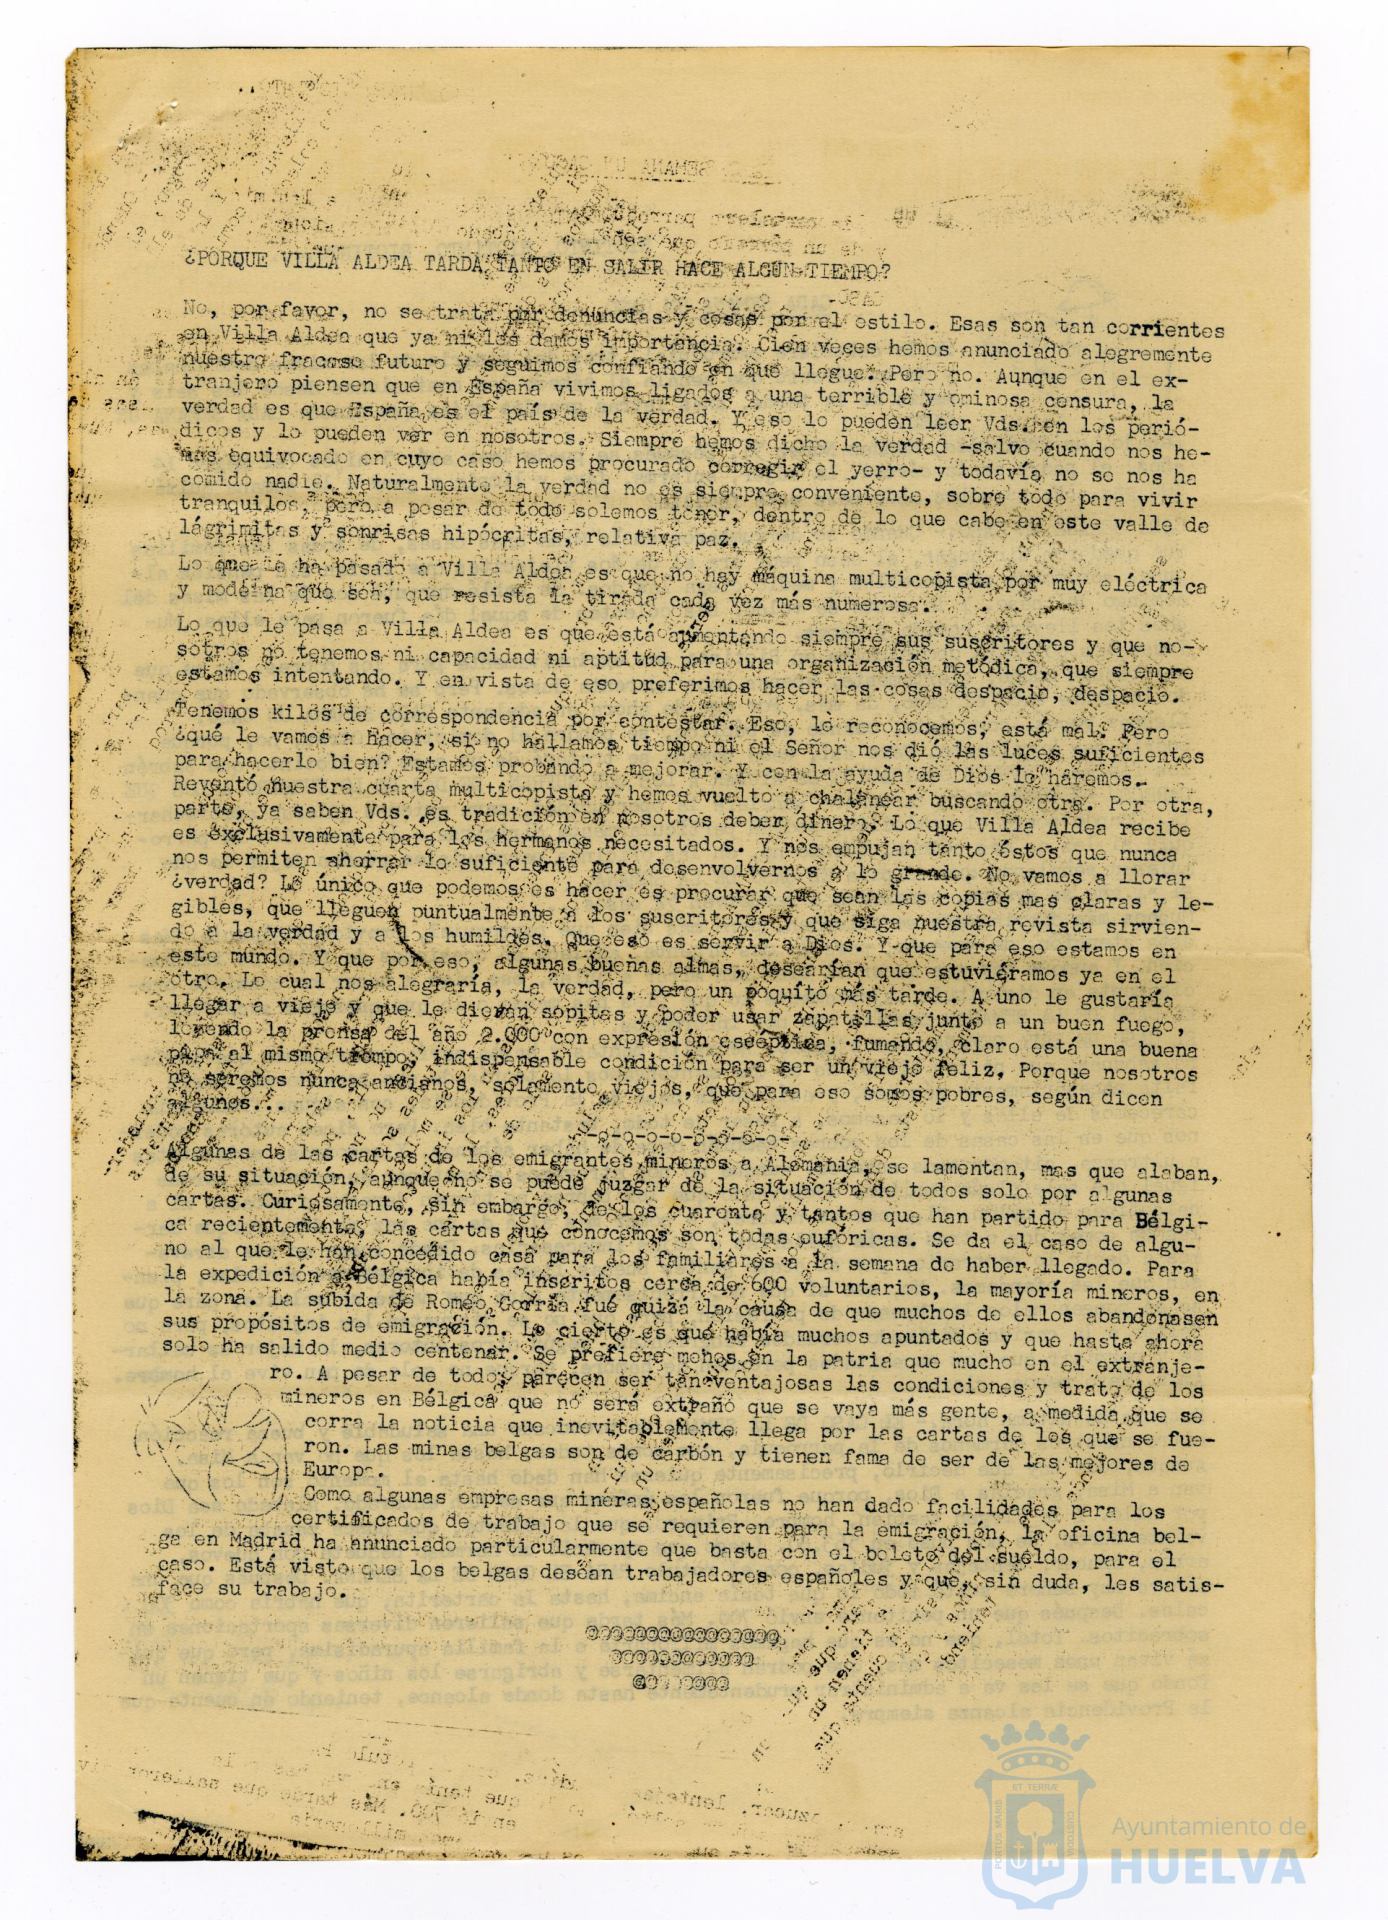 ¿PORQUE VILLA ALDEA TARDA TANTO EN SALIR HACE ALGUN TIEMPO?
No, por favor, no se trata por denuncias y cosas por el estilo. Esas son tan corrientes
en Villa Aldea que ya ni les damos importancia. Cien veces hemos anunciado alegremente
nuestro fracaso futuro y seguimos confiando en que llegue. Pero no. Aunque en el ex-
tranjero piensen que en España vivimos ligados a una terrible y ominosa censura, la
verdad es que España es el país de la verdad. Y eso lo pueden leer Vds. en los perió-
dicos y lo pueden ver en nosotros. Siempre hemos dicho la verdad -salvo cuando nos he-
mos equivocado en cuyo caso hemos procurado corregir el yerro- y todavía no se nos ha
comido nadie. Naturalmente la verdad no es siempre conveniente, sobre todo para vivir
tranquilos, pero a pesar de todo solemos tener, dentro de lo que cabe en este valle de
lágrimitas y sonrisas hipócritas, relativa paz.
Lo que le ha pasado a Villa Aldea es que no hay máquina multicopista por muy eléctrica
y moderna que sea, que resista la tirada cada vez más numerosa.
Lo que le pasa a Villa Aldea es que está aumentando siempre sus suscritores y que no-
sotros no tenemos ni capacidad ni aptitud para una organización metódica, que siempre
estamos intentando. Y en vista de eso preferimos hacer las cosas despacio, despacio.
Tenemos kilos de correspondencia por contestar. Eso, lo reconocemos, está mal. Pero
¿qué le vamos a hacer, si no hallamos tiempo ni el Señor nos dió las luces suficientes
para hacerlo bien? Estamos probando a mejorar. Y con la ayuda de Dios lo haremos.
Reventó nuestra cuarta multicopista y hemos vuelto a chalanear buscando otra. Por otra,
parte, ya saben Vds. es tradición en nosotros deber dinero. Lo que Villa Aldea recibe
es exclusivamente para los hermanos necesitados. Y nos empujan tanto éstos que nunca
nos permiten ahorrar lo suficiente para desenvolvernos a lo grande. No vamos a llorar
¿verdad? Lo único que podemos es hacer es procurar que sean las copias mas claras y le-
gibles, que lleguen puntualmente a los suscritores y que siga nuestra revista sirvien-
do a la verdad y a los humildes. Que eso es servir a Dios. Y que para eso estamos en
este mundo. Y que por eso, algunas buenas almas, desearían que estuviéramos ya en el
otro. Lo cual nos alegraría, la verdad, pero un poquito más tarde. A uno le gustaría
llegar a viejo y que le dieran sopitas y poder usar zapatillas junto a un buen fuego,
leyendo la prensa del año 2.000 con expresión escéptica, fumando, claro está una buena
pipa al mismo tiempo, indispensable condición para ser un viejo feliz. Porque nosotros
no seremos nunca ancianos, solamente viejos, que para eso somos pobres, según dicen
algunos...
-o-o-o-o-o-o-o-o-
Algunas de las cartas de los emigrantes mineros a Alemania, se lamentan, mas que alaban,
de su situación, aunque no se puede juzgar de la situación de todos solo por algunas
cartas. Curiosamente, sin embargo, de los cuarenta y tantos que han partido para Bélgi-
ca recientemente, las cartas que conocemos son todas eufóricas. Se da el caso de algu-
no al que le han concedido casa para los familiares a la semana de haber llegado. Para
la expedición a Bélgica había inscritos cerca de 600 voluntarios, la mayoría mineros, en
la zona. La subida de Romeo Gorría fué quizá la causa de que muchos de ellos abandonasen
sus propósitos de emigración. Lo cierto es que había muchos apuntados y que hasta ahora
solo ha salido medio centenar. Se prefiere menos en la patria que mucho en el extranje-
ro. A pesar de todo, parecen ser tan ventajosas las condiciones y trato de los
mineros en Bélgica que no será extraño que se vaya más gente, a medida que se
corra la noticia que inevitablemente llega por las cartas de los que se fue-
ron. Las minas belgas son de carbón y tienen fama de ser de las mejores de
Europa.
Como algunas empresas mineras españolas no han dado facilidades para los
certificados de trabajo que se requieren para la emigración, la oficina bel-
ga en Madrid ha anunciado particularmente que basta con el boleto del sueldo, para el
caso. Está visto que los belgas desean trabajadores españoles y que, sin duda, les satis-
face su trabajo.
@@@@@@@@@@@@@@@@
@@@@@@@@@@@@
@@@@@@@@
PORTUS MARIS ET TERRAE CUSTODIA
Ayuntamiento de
HUELVA